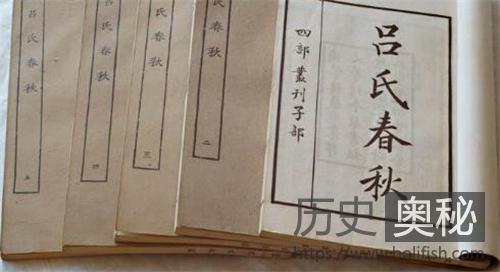 呂氏春秋
四部叢刊子部
呂氏春秋
二
呂氏春秋
三
呂氏春秋
四
呂氏春秋
五
历史 奥秘
https://www.holifish.com